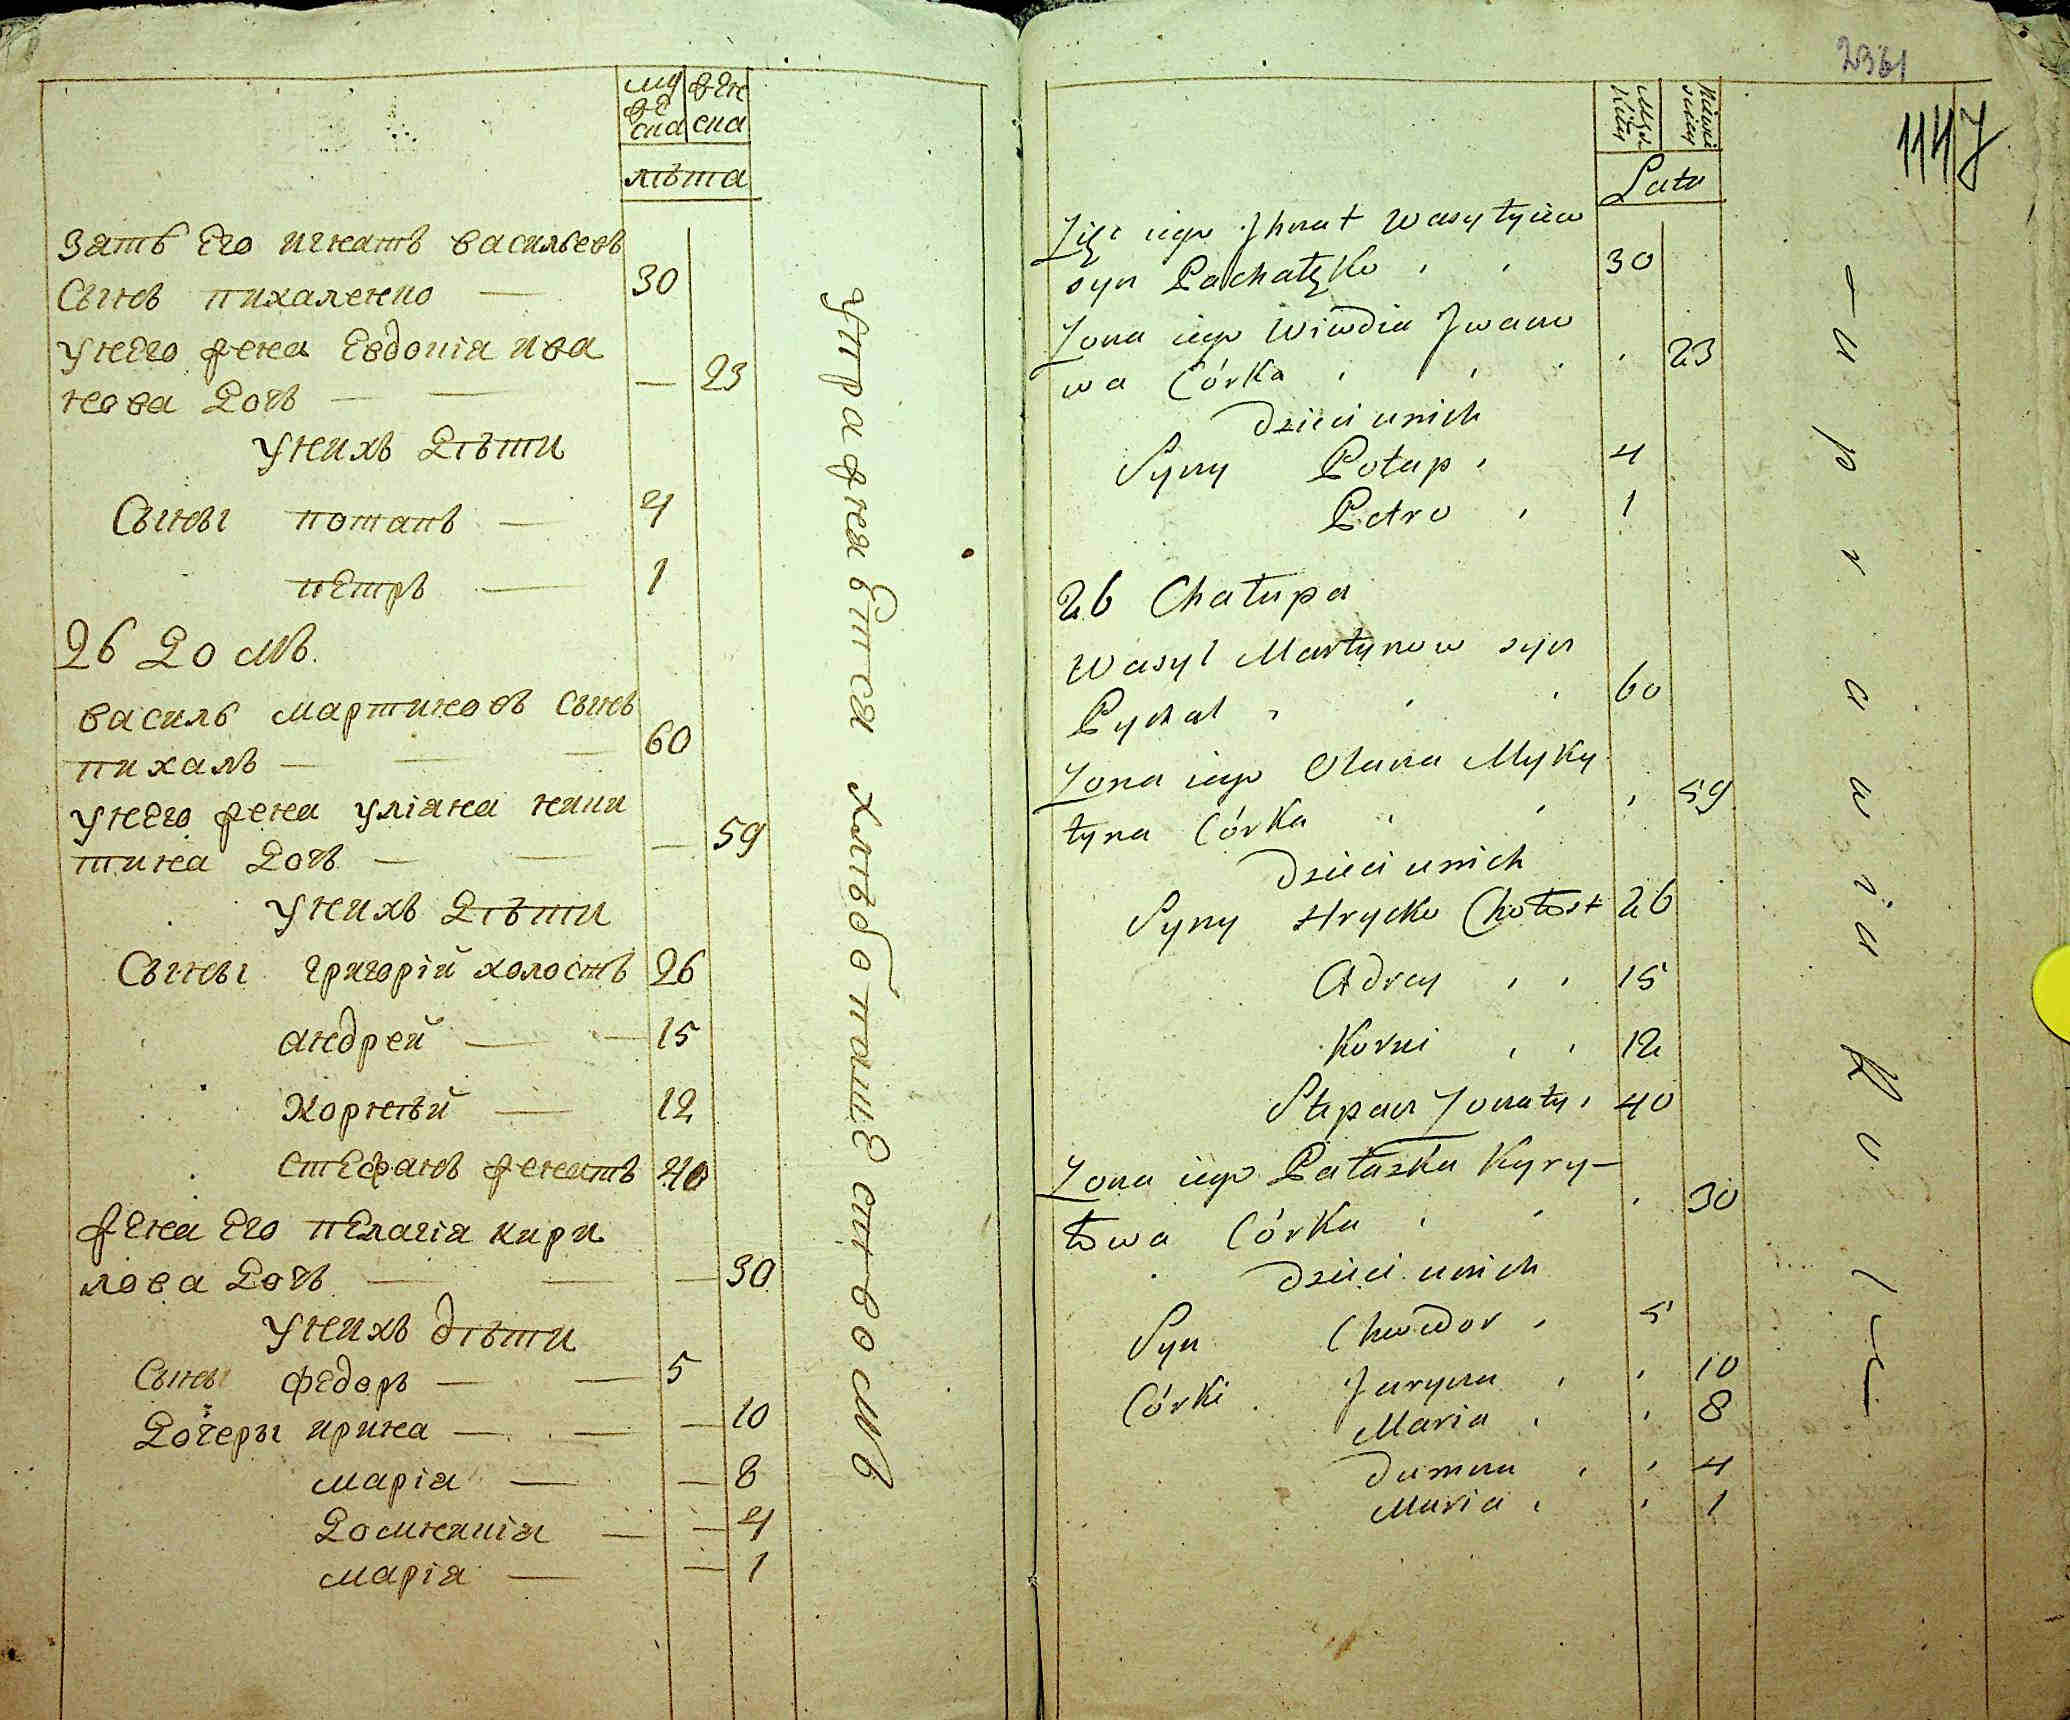 мужеска женска
лѣта
зять Его игнатъ васильевъ
Сынъ пихаленко — 30
унего жена Евдокія ива
нова Дочь — — — 23
унихъ Дѣти
Сыны потапъ — 4
пЕтръ — 1
26 Домъ.
василь мартиновъ Сынъ
пихалъ — — — 60
унего жена уліяна ники
тина Дочь — — — 59
унихъ Дѣти
Сыны григорій холостъ 26
андрей — — 15
Корнѣй — 12
стЕфанъ женатъ 40
жена Его пЕлагія кири
лова Дочь — — — 30
унихъ дѣти
Сыны фЕдоръ — — 5
Дочеры ирина — — — 10
марія — — 8
Домникія — — 4
марія — — 1
упражняЕтся хлѣбопашЕсквомъ
2361
1147
Męzkiey
Lata
Zięć iego Jhnat Wasylyiew
syn Pachałyko , , 30
Zona iego Wiwdia Iwano
wa Córka , , , , 23
Dzieci unich
Syny Potap , 4
Petro , 1
26 Chałupa
Wasyl Martynow syn
Pychal , , , 60
Zona iego Olana Myky
tyna Córka , , , 59
Dzieci unich
Syny Hrycko Chołost 26
Adrey , , 15
Korni , , 12
Stepan Zonaty , 40
Zona iego Pałazka Kyry–
łowa Córka , , , 30
Dzieci unich
Syn Chwedor , 5
Córki Jaryna , , 10
Maria , , 8
Dumna , , 4
Maria , , 1